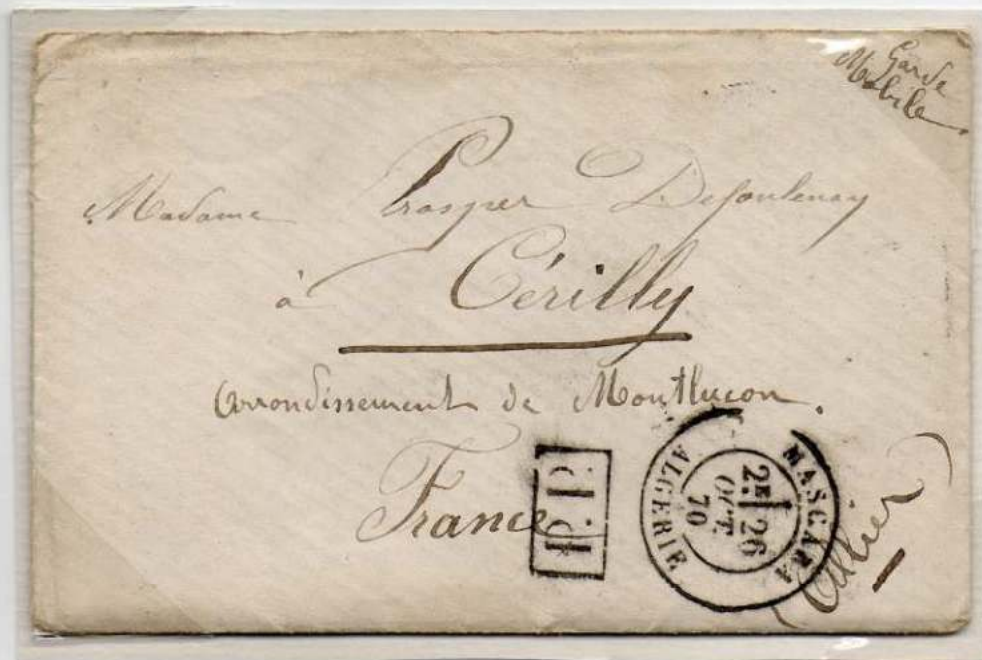 Garde
Mobile
Madame Prosper Defoulenay
à Cérilly
arrondissement de Montluçon.
France
(Allier)
P.P.
MASCARA
2E 26
OCT.
70
ALGERIE